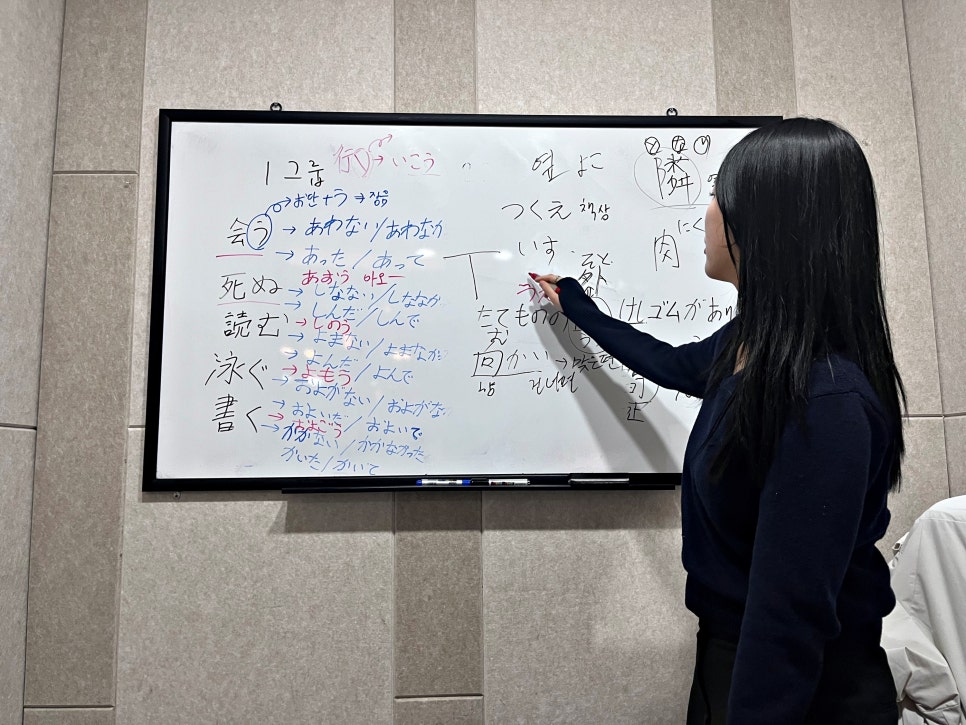 1그룹
行く→いこう
会う
→おわ+う→장음
→あわない/あわなか
→あった/あって
あおう 아오ー
死ぬ
→しなない/しななか
→しんだ/しんで
→しのう
読む
→よまない/よまなか
→よんだ/よんで
→よもう
泳ぐ
→およがない/およがな
→およいだ/およいで
→およごう
書く
→かかない/かかなかった
かいた/かいて
옆 よこ
つくえ 책상
いす
たてものの
向かい→맞은편
건너편
隣
にく
肉
けしゴムがあり
正